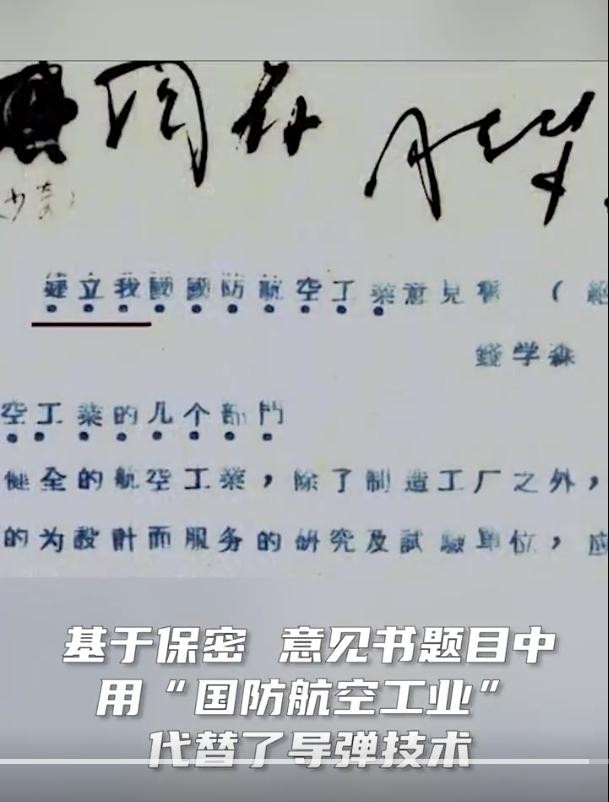 建立我國國防航空工業意見書（
錢学森
空工業的几个部門
健全的航空工業，除了制造工厂之外，
的为設計而服务的研究及試驗單位，应
基于保密 意见书题目中
用“国防航空工业”
代替了导弹技术